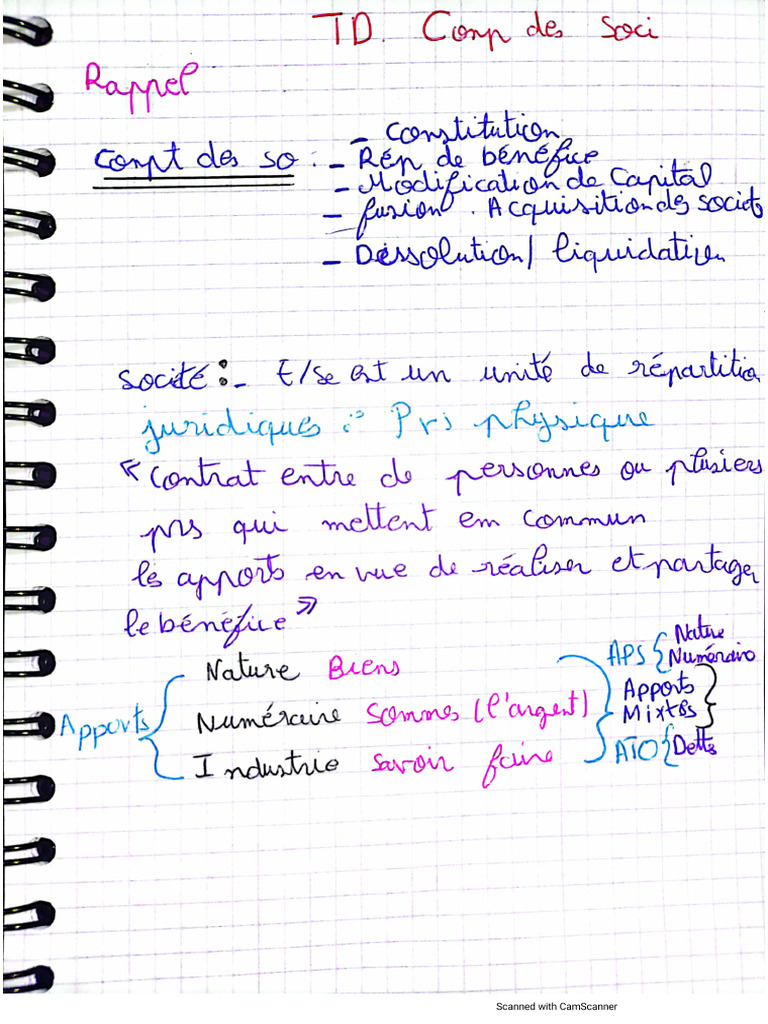 TD. Comp des Soci
Rappel
Compt des so : - Constitution
- Rép de bénéfice
- Modification de Capital
- fusion . Acquisition des societs
- Dessolution / liquidation
société : - E/se est un unité de répartition
juridiques : Prs physique
« Contrat entre de personnes ou plusiers
prs qui mettent em commun
les apports en vue de réaliser et partager
le bénéfice »
Apports { Nature Biens
Numéraire Sommes (l'argent)
Industrie savoir faire
APS { Nature
Numéraire
Apports
Mixtes
ATO { Detts
Scanned with CamScanner